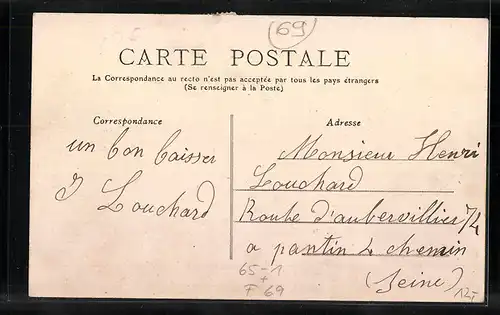 69
CARTE POSTALE
La Correspondance au recto n'est pas acceptée par tous les pays étrangers
(Se renseigner à la Poste)
Correspondance
Adresse
un bon baiser
J Louchard
Monsieur Henri
Louchard
Route d'aubervillier 74
a pantin 4 chemin
(Seine)
65-1
+
F 69